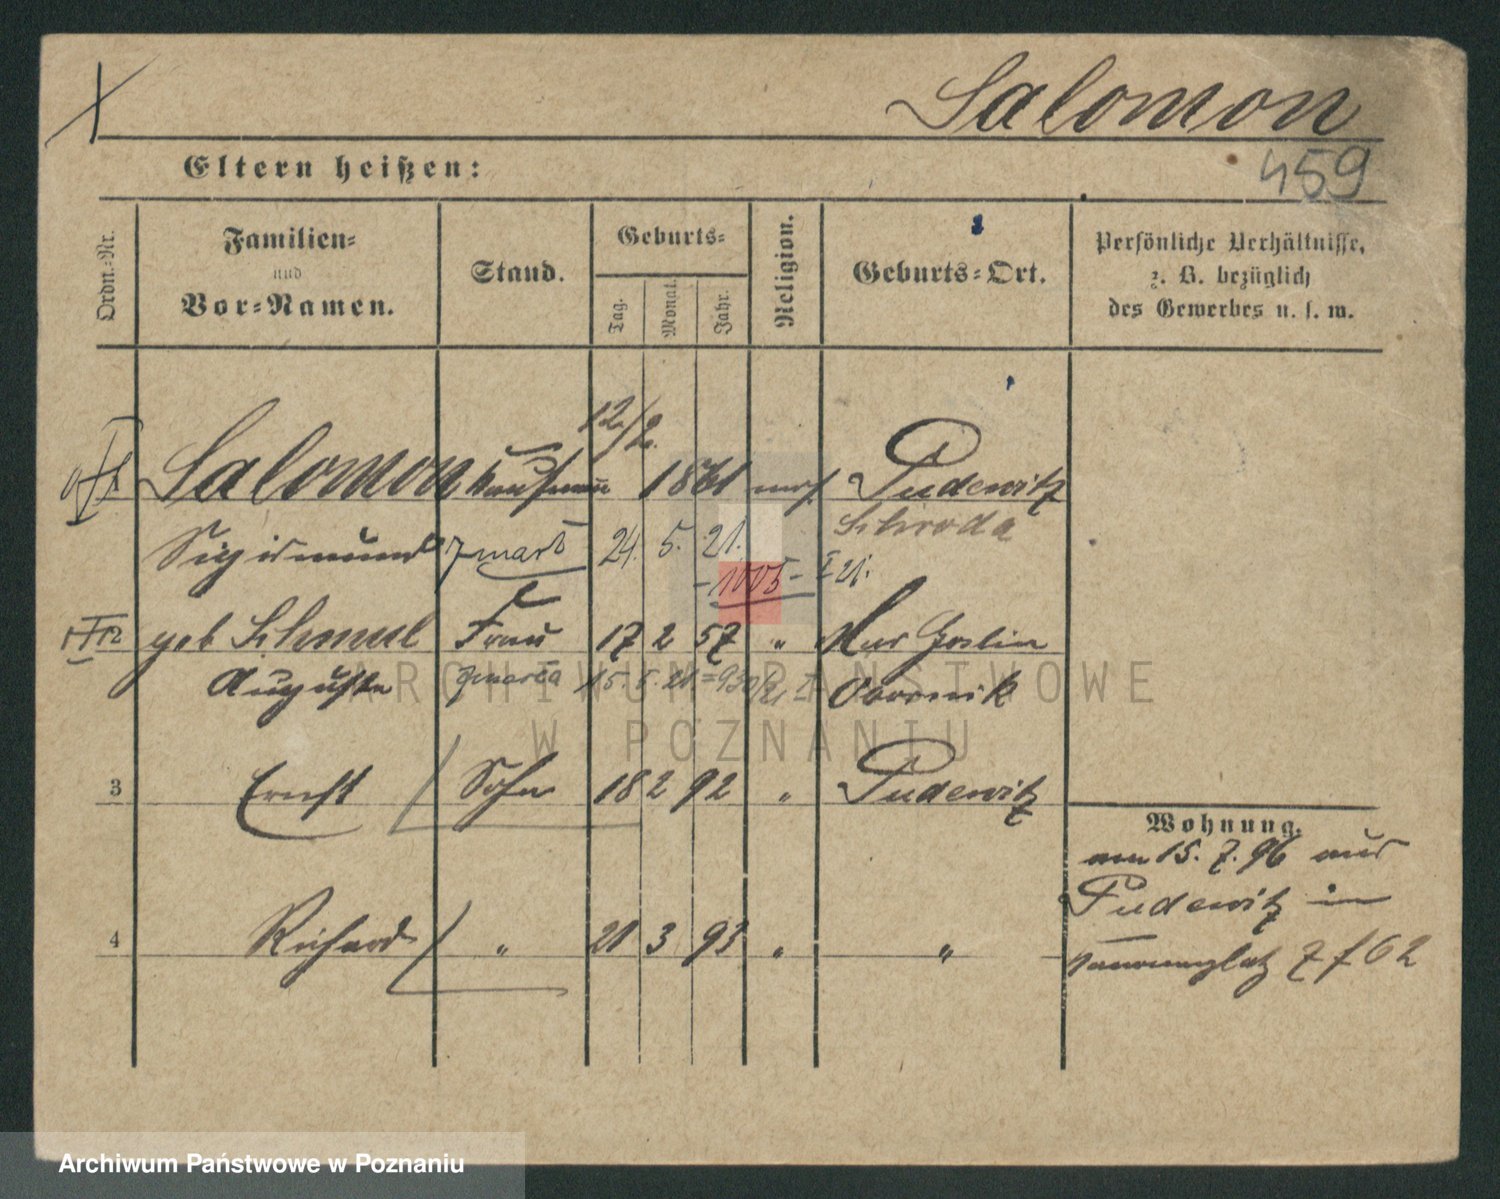 Salomon
459
Eltern heißen:
Ordn.-Nr.
Familien-
und
Vor-Namen.
Stand.
Geburts-
Tag.
Monat.
Jahr.
Religion.
Geburts-Ort.
Persönliche Verhältnisse,
z. B. bezüglich
des Gewerbes u. s. w.
12/2.
Salomon Kaufmann 1861 mos. Pudewitz
Sigismund zmarł 24. 5. 21. Schroda
-1005- I 21.
geb Schmul Frau 17 2 57 " Mur Goslin
Auguste zmarła 15. 5. 21. Obornik
3 Ernst Sohn 18 2 92 " Pudewitz
Wohnung.
am 15. 7. 96 aus
Pudewitz in
4 Richard " 21 3 93 " "
7 f 62
ARCHIWUM PAŃSTWOWE
W POZNANIU
Archiwum Państwowe w Poznaniu